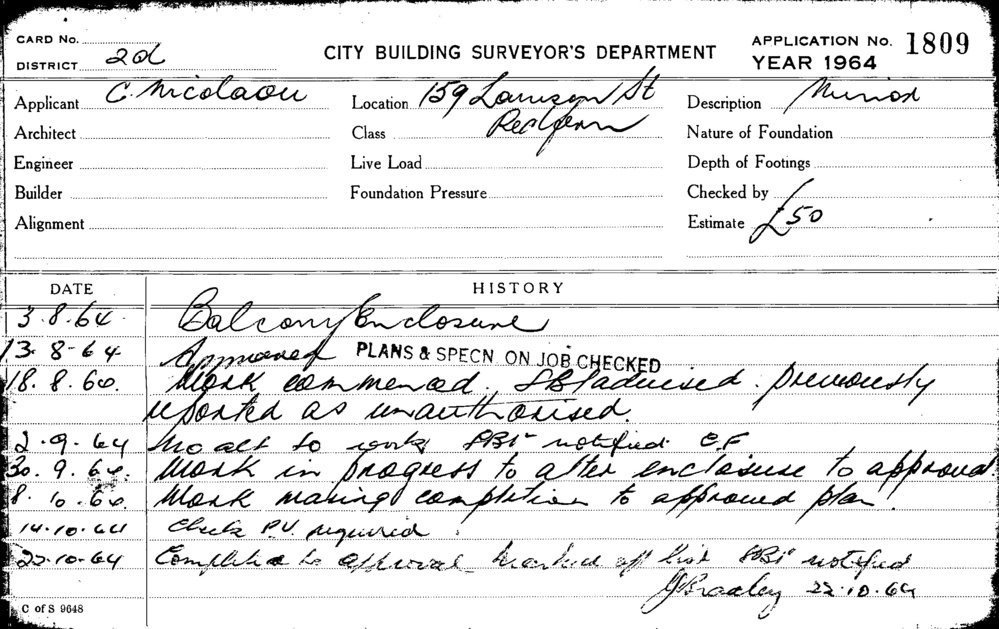 CARD No.
DISTRICT 2d
CITY BUILDING SURVEYOR'S DEPARTMENT
APPLICATION No. 1809
YEAR 1964
Applicant C. Nicolaou
Location 159 Lawson St
Redfern
Description Minor
Architect
Class
Nature of Foundation
Engineer
Live Load
Depth of Footings
Builder
Foundation Pressure
Checked by
Alignment
Estimate £50
DATE
HISTORY
3.8.64 Balcony Enclosure
13.8-64 Approved PLANS & SPECN ON JOB CHECKED
18.8.64. Work commenced. advised. previously
reported as unauthorised.
2.9.64 No alt to work notified. C.F
30.9.64. Work in progress to alter enclosure to approval
8.10.64. Work nearing completion to approved plan.
14.10.64 Check P.V. required.
22.10.64 Completed to approval marked off list notified
J Bradley 22.10.64
C of S 9648